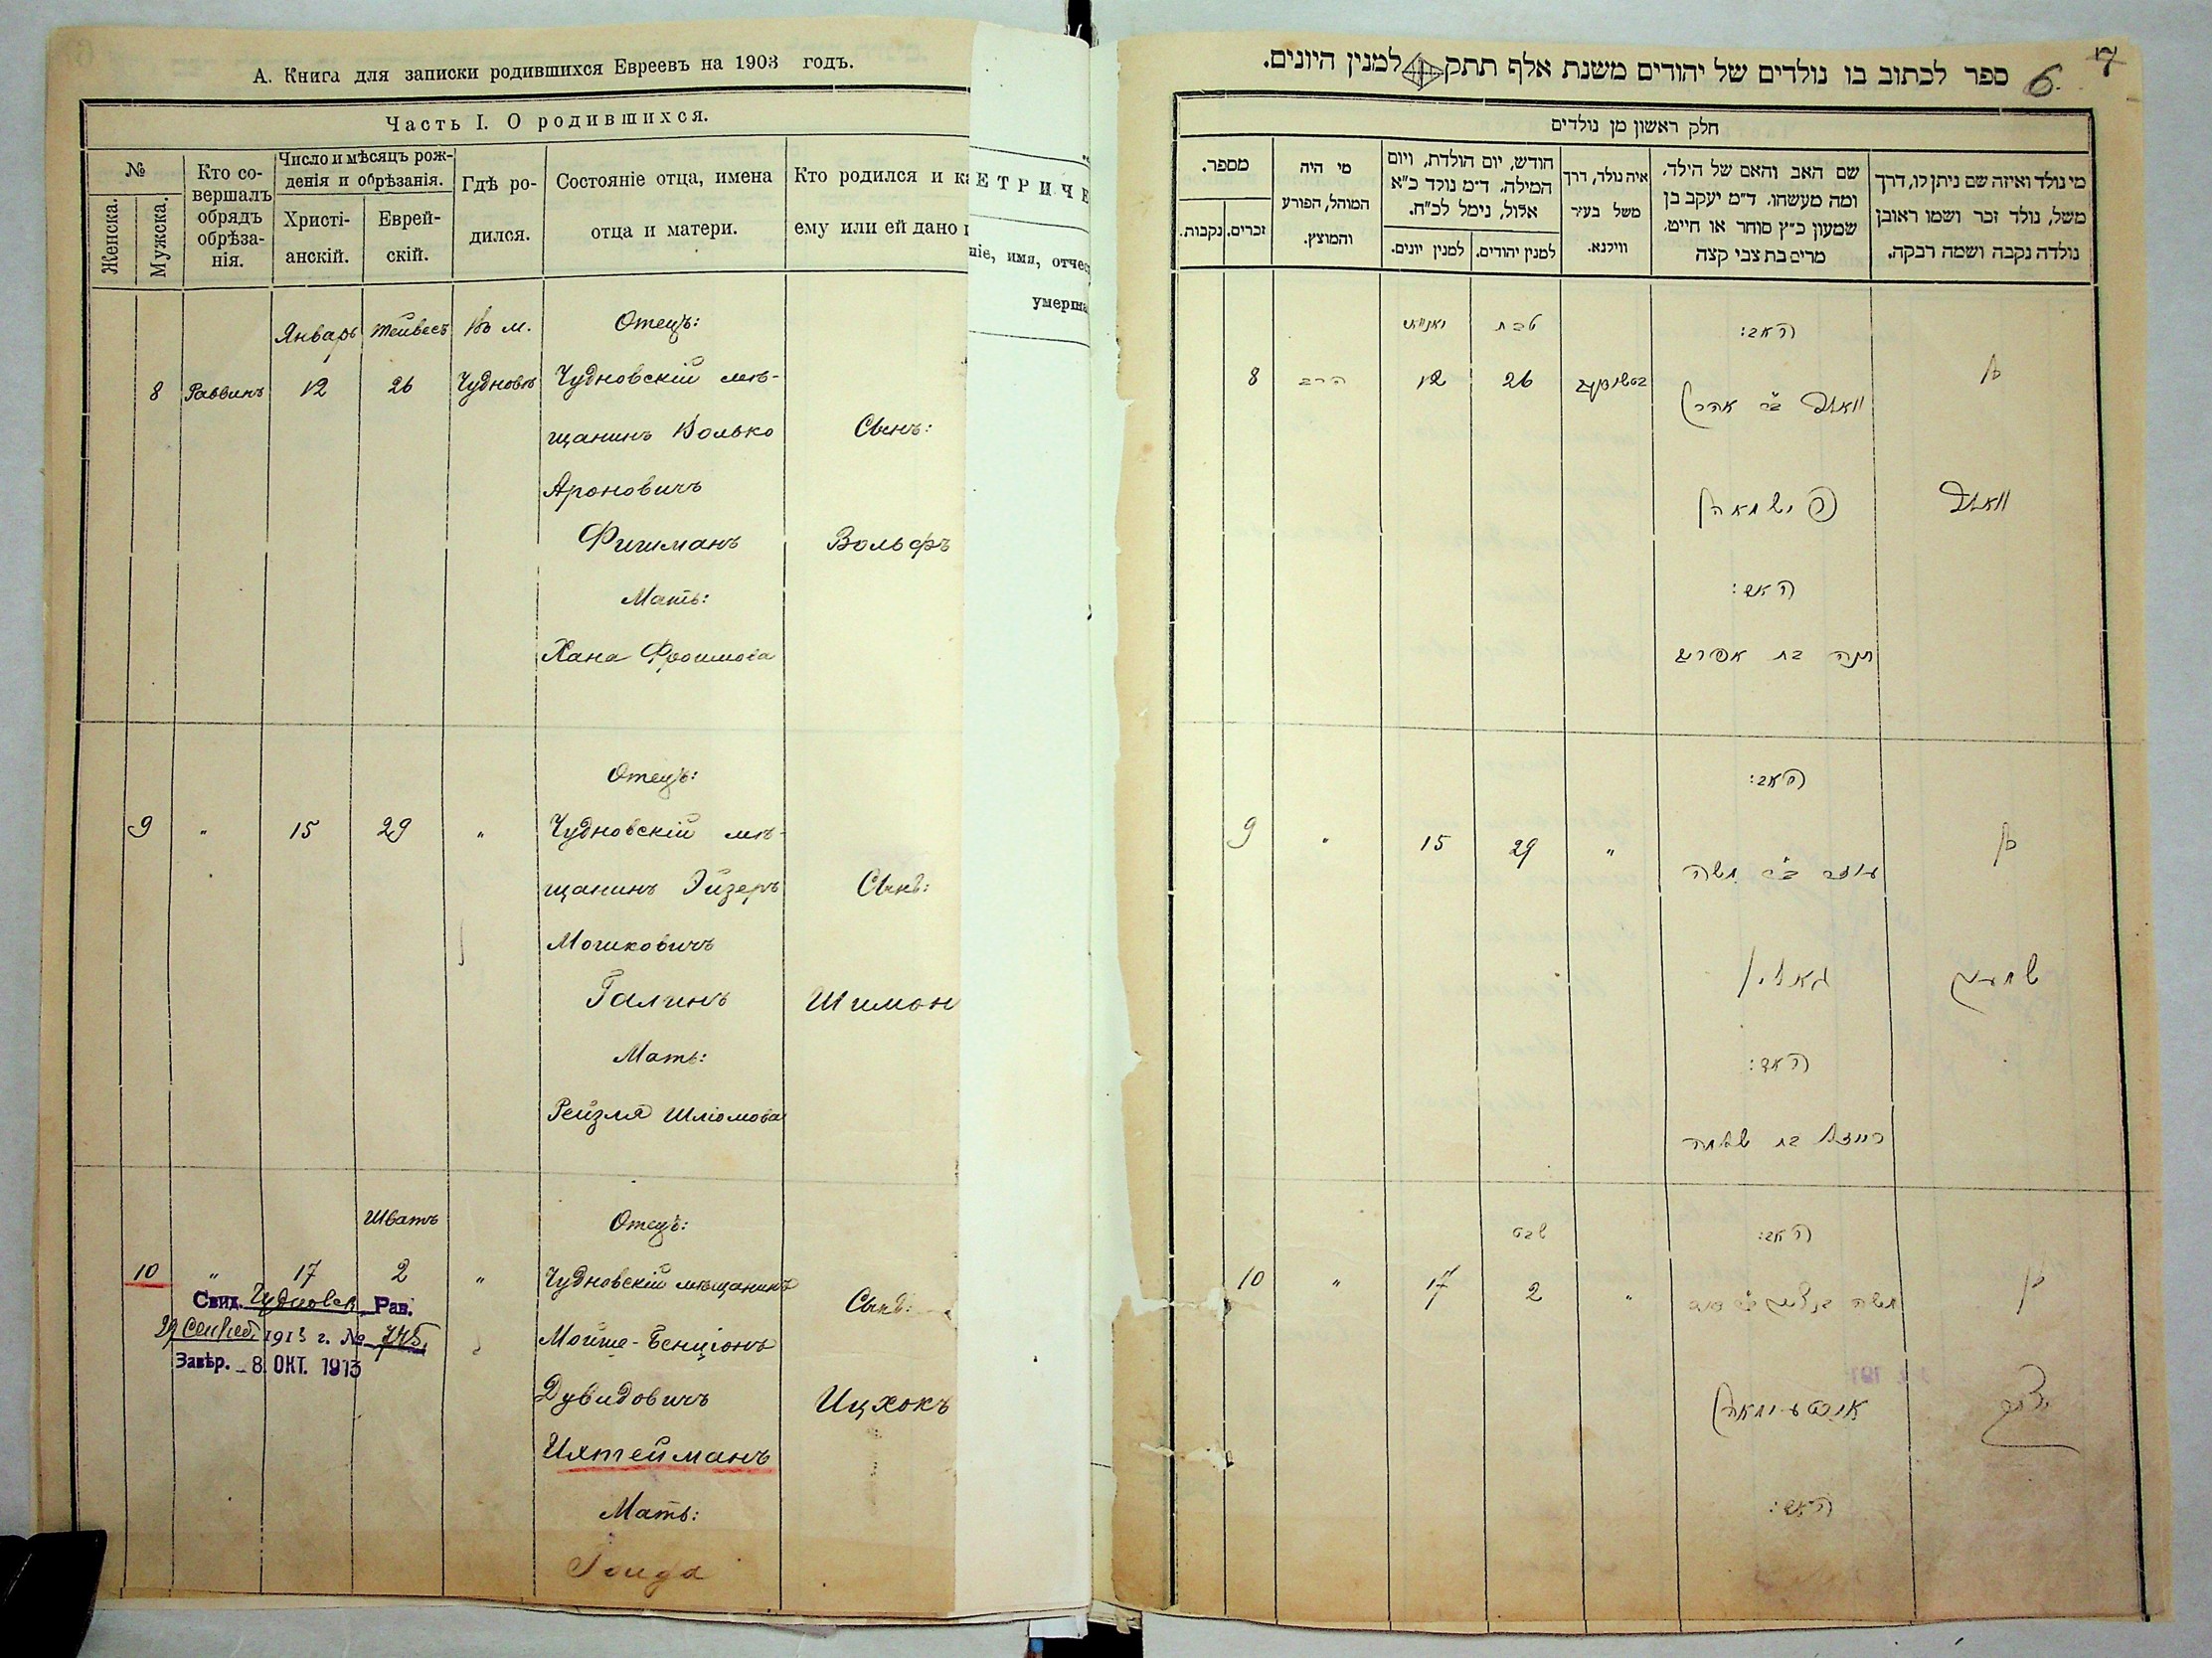 А. Книга для записки родившихся Евреевъ на 1903 годъ.
Часть I. О родившихся.
№
Женска.
Мужска.
Кто со-
вершалъ
обрядъ
обрѣза-
нія.
Число и мѣсяцъ рож-
денія и обрѣзанія.
Христі-
анскій.
Еврей-
скій.
Гдѣ ро-
дился.
Состояніе отца, имена
отца и матери.
Кто родился и ка
ему или ей дано
Январь Тейвесъ Въ м. Отецъ:
8 Раввинъ 12 26 Чудновъ Чудновскій мѣ-
щанинъ Волько Сынъ:
Ароновичъ
Фишманъ Вольфъ
Мать:
Хана Фроимова
Отецъ:
9 " 15 29 " Чудновскій мѣ-
щанинъ Эйзеръ Сынъ:
Мошковичъ
Галинъ Шимон
Мать:
Рейзля Шліомова
Шватъ Отецъ:
10 " 17 2 " Чудновскій мѣщанинъ
Сынъ:
Свид. Чудновск. Рав.
29 Сентяб. 1913 г. № 745
Завѣр. 8 ОКТ. 1913
Мойше-Бенціонъ
Дувидовичъ Ицхокъ
Ихтейманъ
Мать:
ЕТРИЧЕ
ніе, имя, отчес
умерша
ספר לכתוב בו נולדים של יהודים משנת אלף תתק למנין היונים.
6.
חלק ראשון מן נולדים
מספר.
זכרים.
נקבות.
מי היה
המוהל, הפורע
והמוצץ.
חודש, יום הולדת, ויום
המילה. ד״מ נולד כ״א
אלול, נימל לכ״ח.
למנין יונים.
למנין יהודים.
איה נולד, דרך
משל בעיר
ווילנא.
שם האב והאם של הילד,
ומה מעשהו. ד״מ יעקב בן
שמעון כ״ץ סוחר או חייט.
מרים בת צבי קצה
מי נולד ואיזה שם ניתן לו, דרך
משל, נולד זכר ושמו ראובן
נולדה נקבה ושמה רבקה.
האב: טבת יאנואר
8 הרב 12 26 בן
וואלף ב״ר אהרן
פישמאן וואלף
האם:
חנה בת אפרים
האב:
9 " 15 29 " בן
עוזר ב״ר משה
גאלין שמעון
האם:
רייזל בת שלמה
האב: שבט
10 " 17 2 " בן
האם: